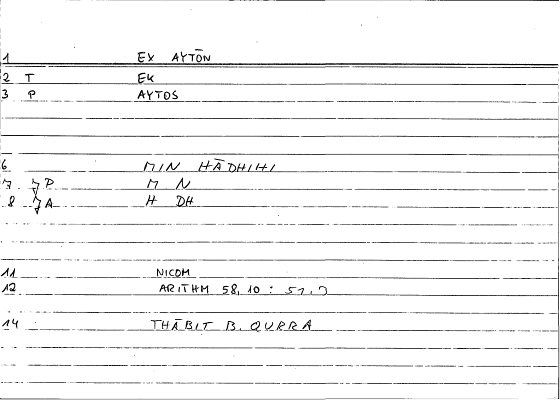 1 EX AYTŌN
2 T EK
3 P AYTOS
6 MIN HĀDHIHI
7 P M N
8 A H DH
11 NICOM
12 ARITHM 58, 10 :
14 THĀBIT B. QURRA